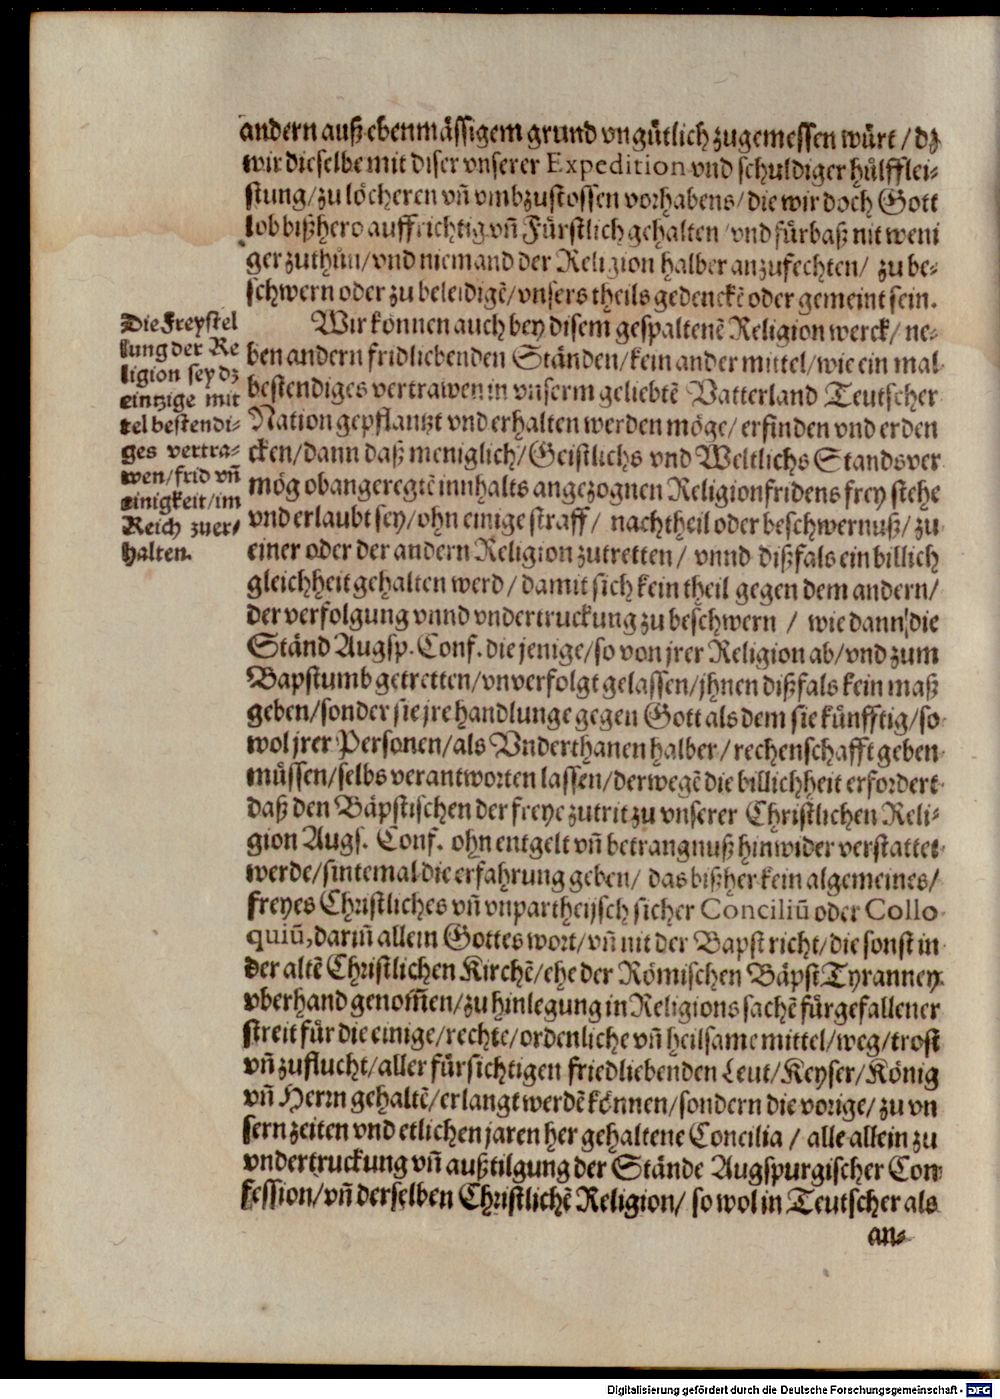 andern auß ebenmässigem grund vngütlich zugemessen würt / dz
wir dieselbe mit diser vnserer Expedition vnd schuldiger hülfflei-
stung/zu löcheren vñ vmbzustossen vorhabens/die wir doch Gott
lob bißhero auffrichtig vñ Fürstlich gehalten/vnd fürbaß nit weni
ger zuthun/vnd niemand der Religion halber anzufechten/ zu be-
schwern oder zu beleidigẽ/vnsers theils gedenckẽ oder gemeint sein.
Die Freystel
lung der Re
ligion sey dz
eintzige mit
tel bestendi-
ges vertra-
wen/frid vñ
einigkeit/im
Reich zuer-
halten.
Wir können auch bey disem gespaltenẽ Religion werck/ ne-
ben andern fridliebenden Ständen/kein ander mittel/wie ein mal
bestendiges vertrawen in vnserm geliebtẽ Vatterland Teutscher
Nation gepflantzt vnd erhalten werden möge/ erfinden vnd erden
cken/dann daß meniglich/Geistlichs vnd Weltlichs Stands ver
mög obangeregtẽ innhalts angezognen Religionfridens frey stehe
vnd erlaubt sey/ohn einige straff/ nachtheil oder beschwernuß/ zu
einer oder der andern Religion zutretten/ vnnd dißfals ein billich
gleichheit gehalten werd/damit sich kein theil gegen dem andern/
der verfolgung vnnd vndertruckung zu beschwern / wie dann/die
Ständ Augsp. Conf. die jenige/so von jrer Religion ab/vnd zum
Bapstumb getretten/vnverfolgt gelassen/jhnen dißfals kein maß
geben/sonder sie jre handlunge gegen Gott als dem sie künfftig/so
wol jrer Personen/als Vnderthanen halber/rechenschafft geben
müssen/selbs verantworten lassen/derwegẽ die billichheit erfordert
daß den Bäpstischen der freye zutrit zu vnserer Christlichen Reli-
gion Augs. Conf. ohn entgelt vñ betrangnuß hinwider verstattet
werde/sintemal die erfahrung geben/ das bißher kein algemeines/
freyes Christliches vñ vnpartheijsch sicher Conciliũ oder Collo
quiũ,dariñ allein Gottes wort/vñ nit der Bapst richt/die sonst in
der altẽ Christlichen Kirchẽ/ehe der Römischen Bäpst Tyranney
vberhand genom̃en/zu hinlegung in Religions sachẽ fürgefallener
streit für die einige/rechte/ordenliche vñ heilsame mittel/weg/trost
vñ zuflucht/aller fürsichtigen friedliebenden Leut/Keyser/König
vñ Herrn gehaltẽ/erlangt werdẽ können/sondern die vorige/zu vn
sern zeiten vnd etlichen jaren her gehaltene Concilia / alle allein zu
vndertruckung vñ außtilgung der Stände Augspurgischer Con
fession/vñ derselben Christlichẽ Religion/ so wol in Teutscher als
an-
Digitalisierung gefördert durch die Deutsche Forschungsgemeinschaft - DFG